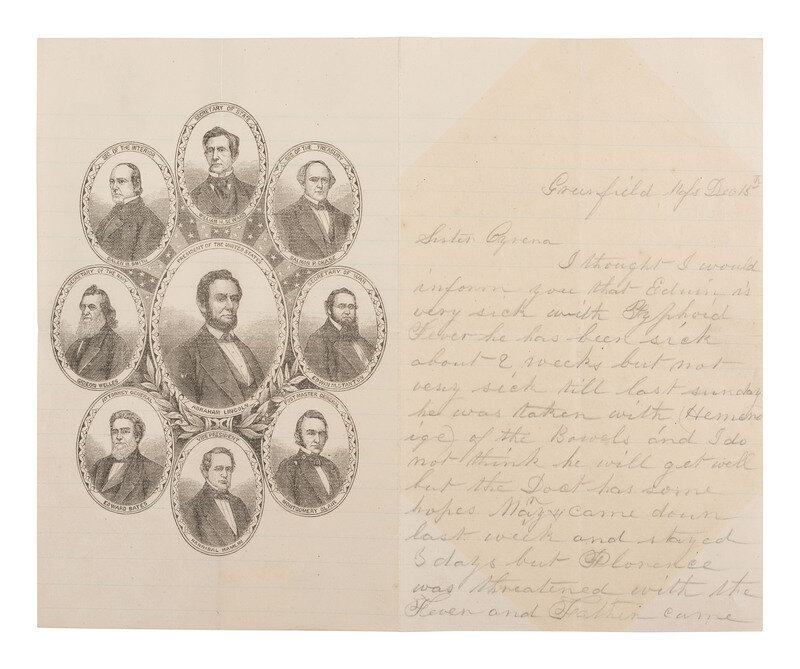 SECRETARY OF STATE
WILLIAM H. SEWARD
SEC OF THE INTERIOR
CALEB B. SMITH
SEC OF THE TREASURY
SALMON P. CHASE
PRESIDENT OF THE UNITED STATES
ABRAHAM LINCOLN
SECRETARY OF THE NAVY
GIDEON WELLES
SECRETARY OF WAR
EDWIN M. STANTON
ATTORNEY GENERAL
EDWARD BATES
VICE PRESIDENT
HANNIBAL HAMLIN
POST MASTER GENERAL
MONTGOMERY BLAIR
Greenfield, Mass Dec 15
Sister Cyrena
I thought I would
inform you that Edwin is
very sick with Typhoid
Fever he has been sick
about 2 weeks but not
very sick till last sunday
he was taken with (Hemerr
ige) of the Bowels and I do
not think he will get well
but the Doct has some
hopes Mary came down
last week and stayed
3 days but Florence
was threatened with the
Fever and Father came